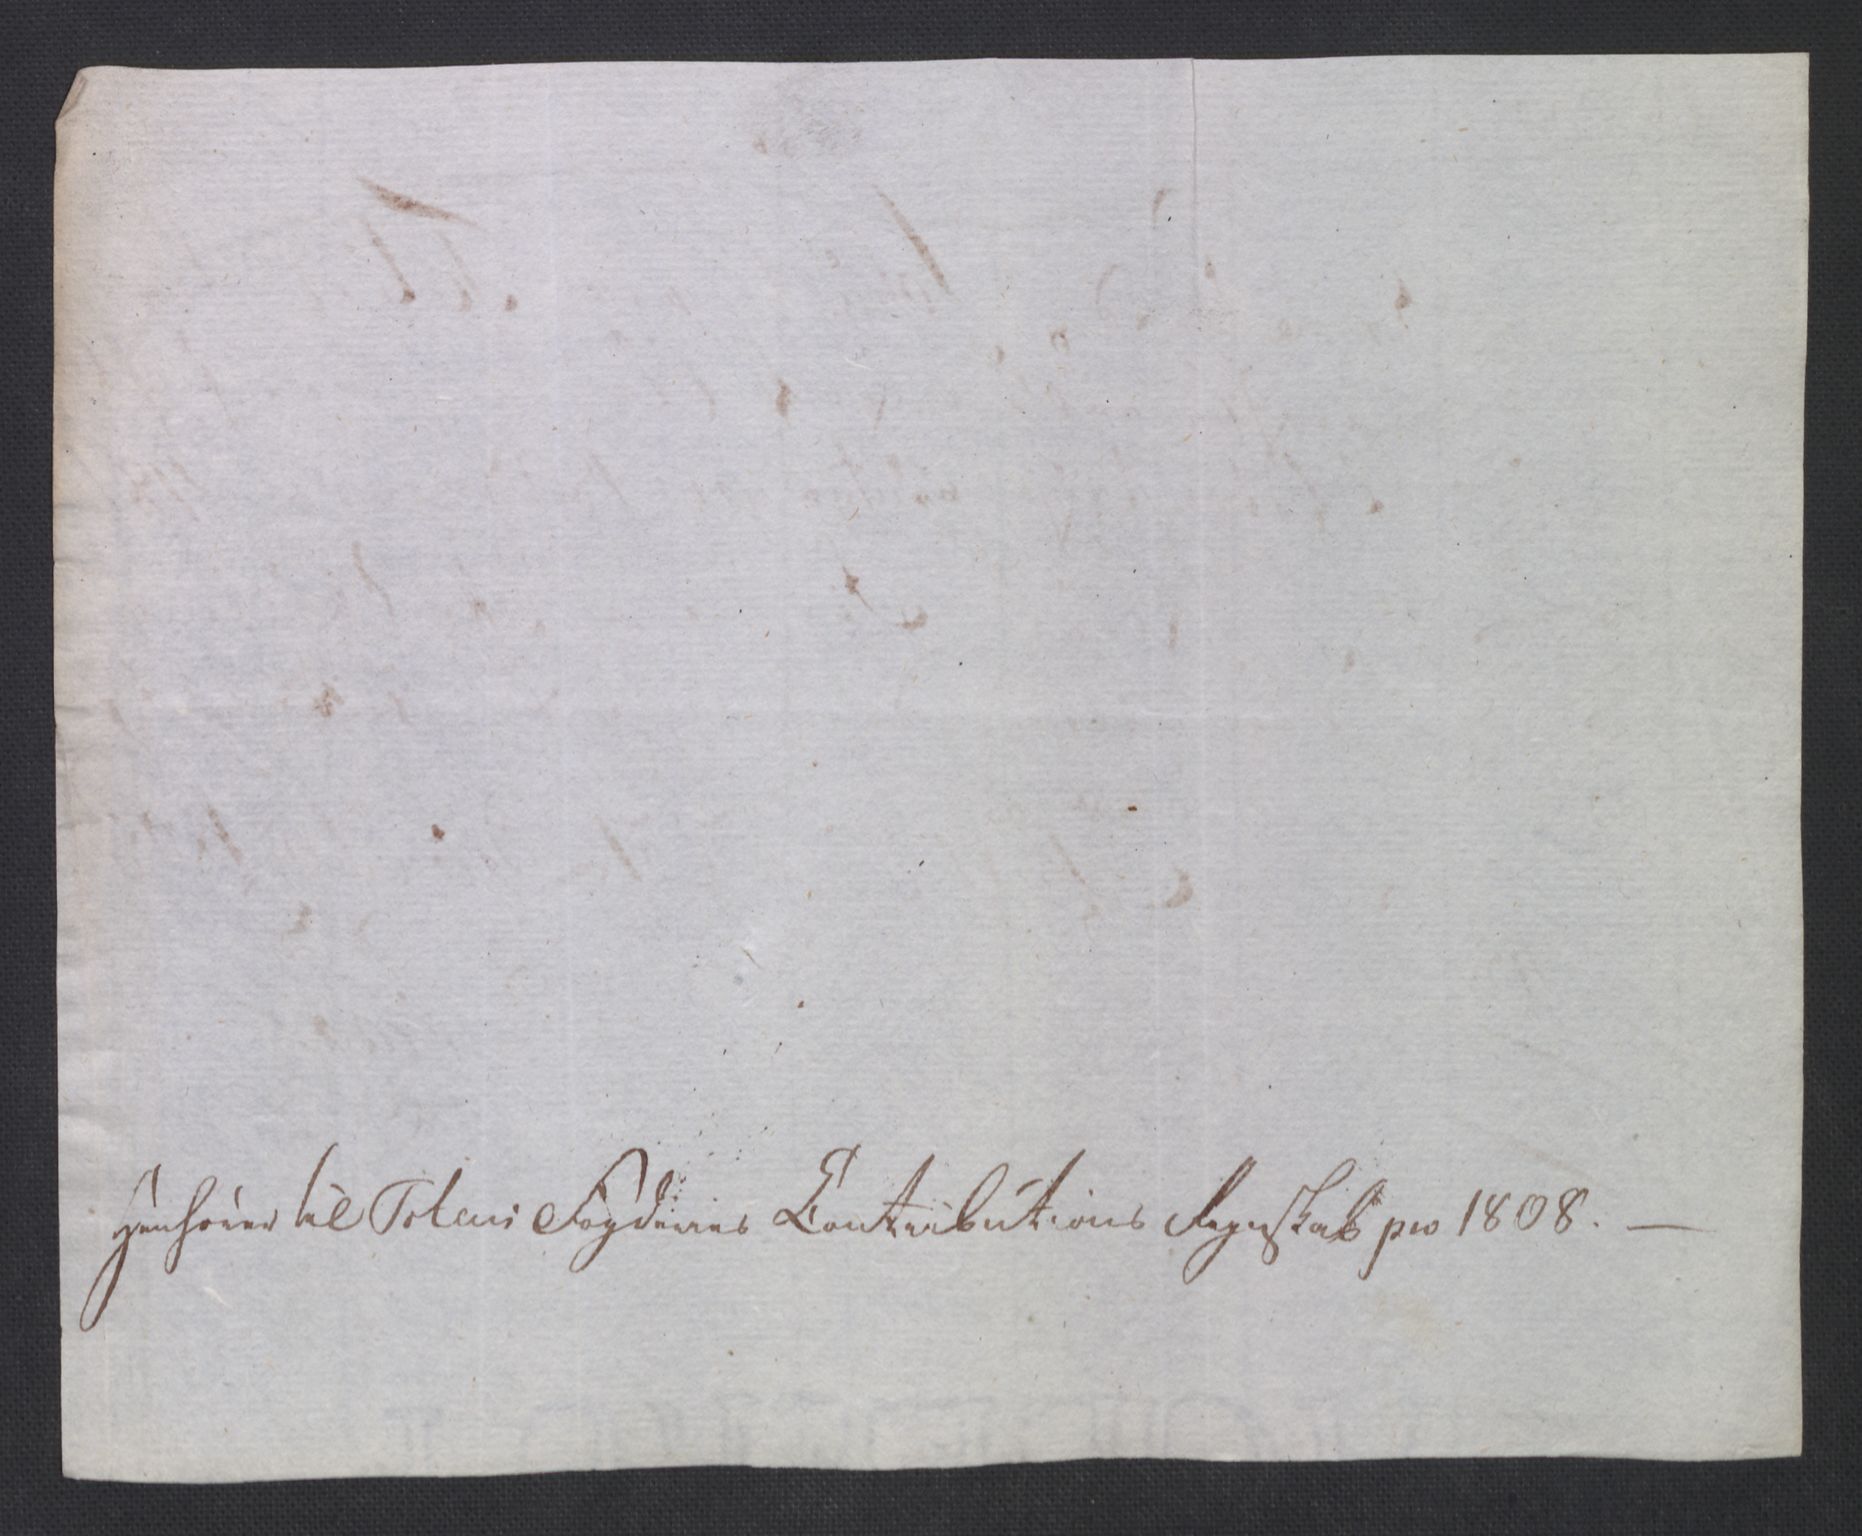 Henhører til Totens Fogderies Contributions Regnskab pro 1808. —